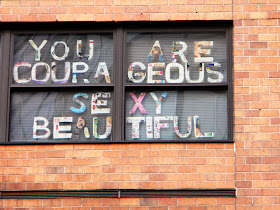 YOU ARE
COURAGEOUS
SEXY
BEAUTIFUL